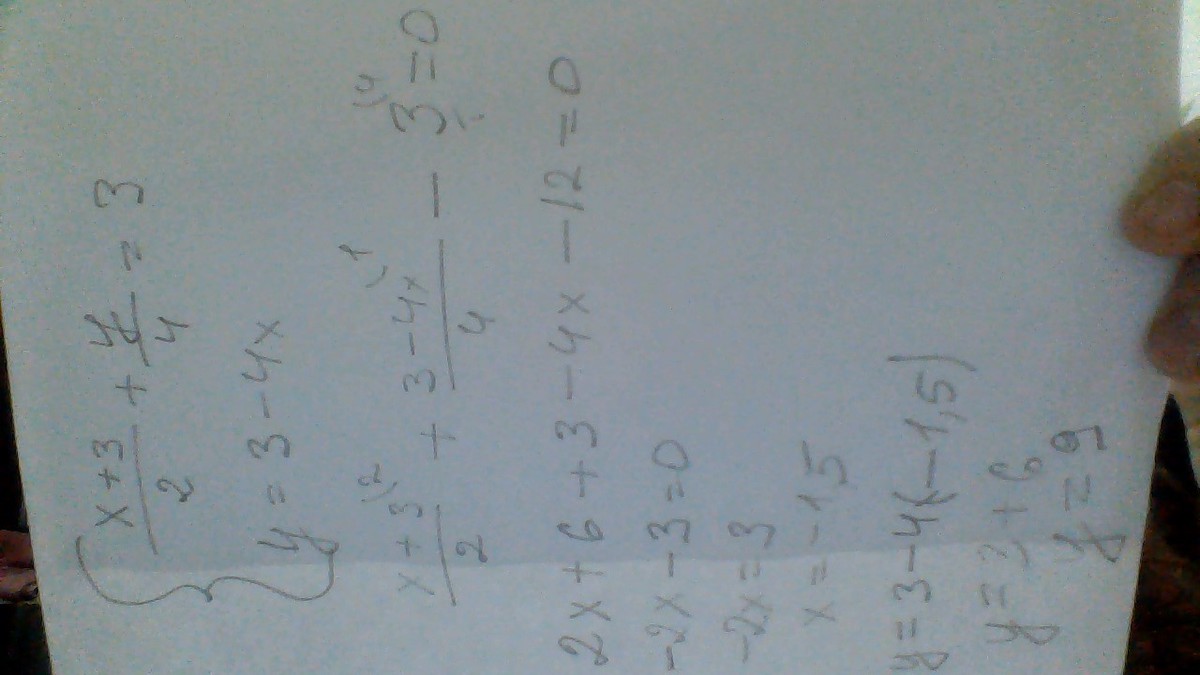 { (x+3)/2 + y/4 = 3
y = 3 - 4x
(x+3)/2 (2 + (3-4x)/4 (1 - 3/1 (4 = 0
2x + 6 + 3 - 4x - 12 = 0
-2x - 3 = 0
-2x = 3
x = -1,5
y = 3 - 4(-1,5)
y = 3 + 6
y = 9